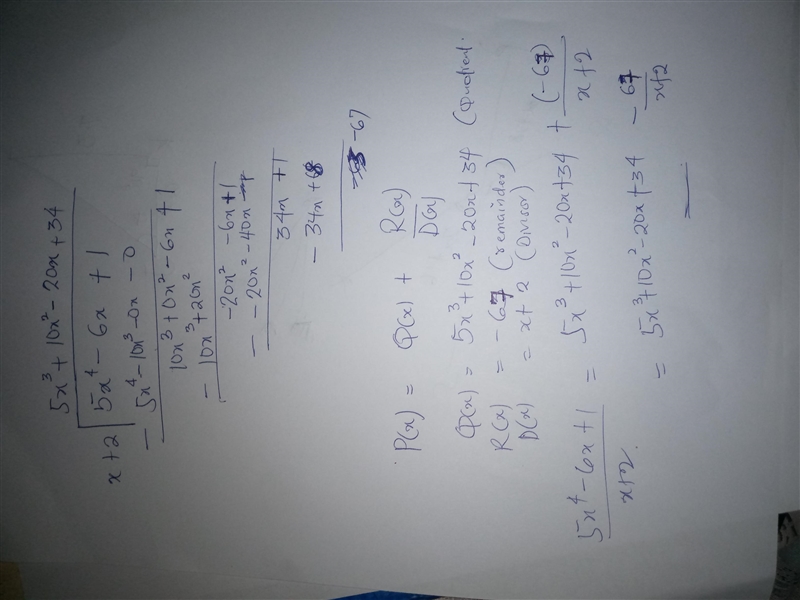 5x³ + 10x² - 20x + 34
x+2 5x⁴ - 6x + 1
- 5x⁴ - 10x³ - 0x - 0
10x³ + 0x² - 6x + 1
- 10x³ + 20x²
-20x² - 6x + 1
- -20x² - 40x
34x + 1
- 34x + 68
-67
P(x) = Q(x) + R(x)/D(x)
Q(x) = 5x³ + 10x² - 20x + 34 (Quotient.
R(x) = -67 (remainder)
D(x) = x + 2 (Divisor)
5x⁴ - 6x + 1/x+2. = 5x³ + 10x² - 20x + 34 + (-67)/x+2
= 5x³ + 10x² - 20x + 34 - 67/x+2